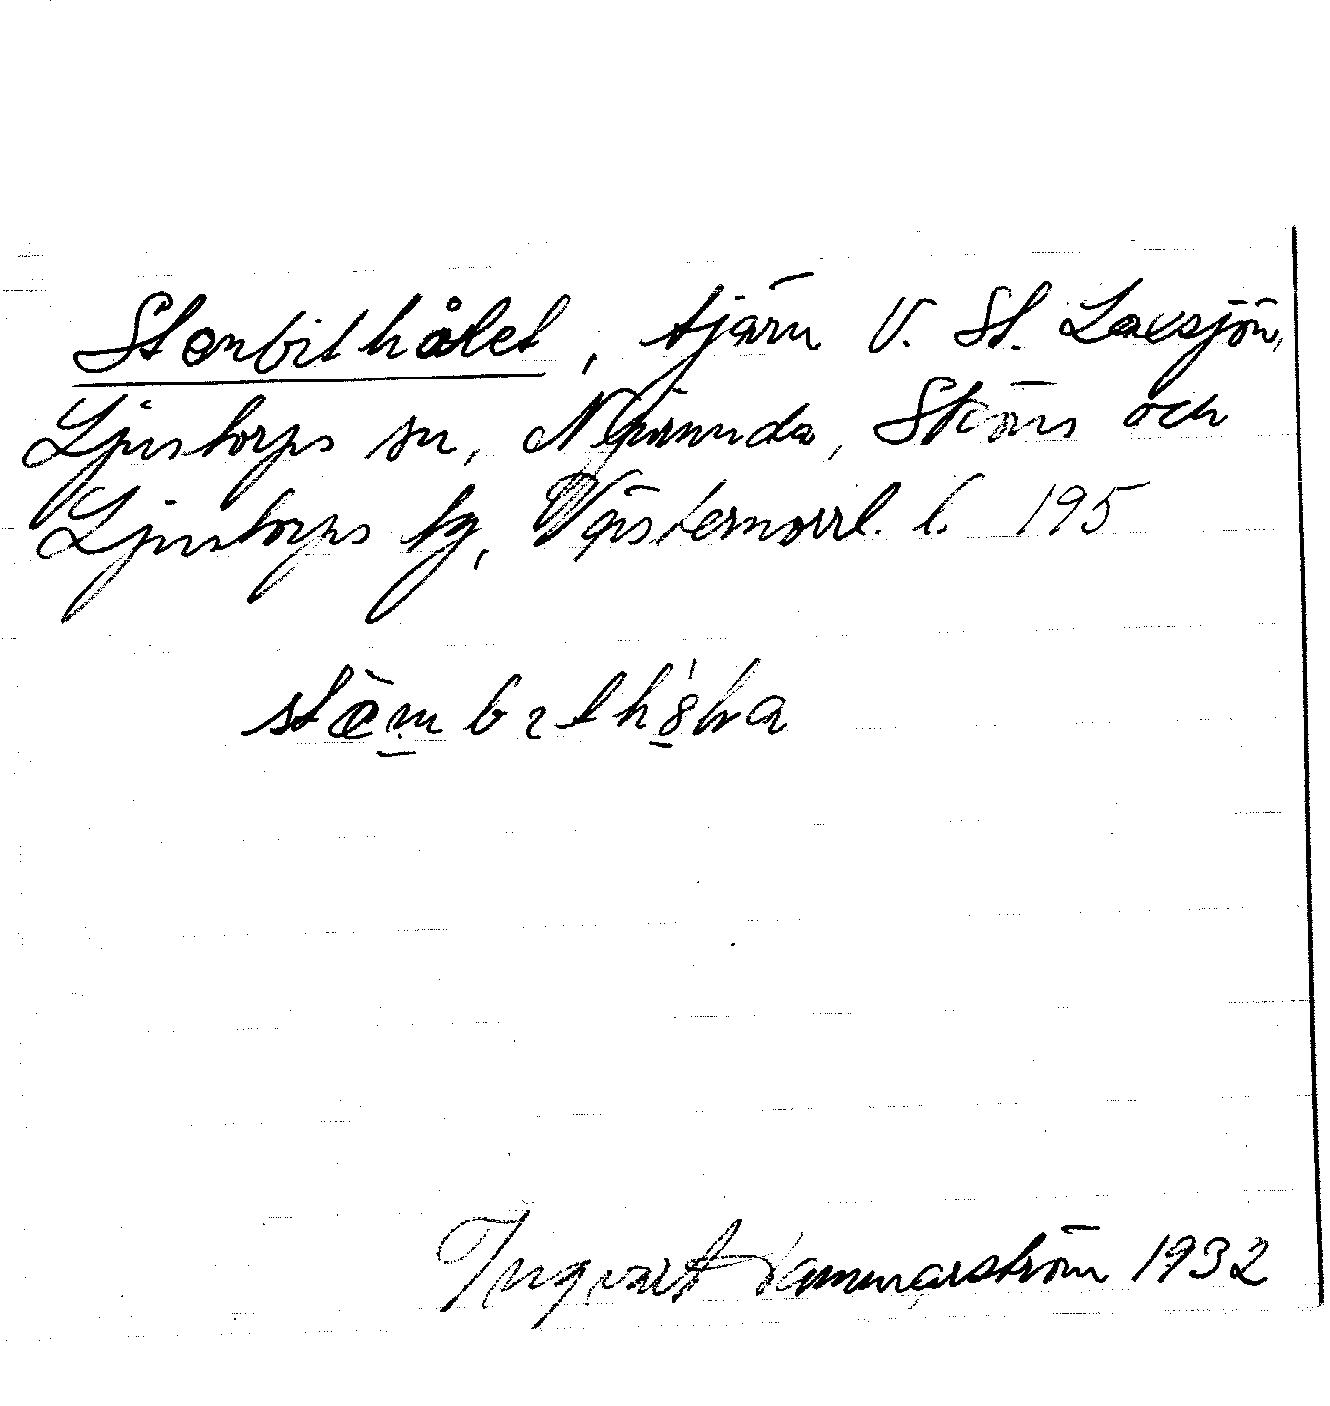 Stenbithålet, tjärn V. St. Laxsjön,
Ljustorps sn, Njurunda, Sköns och
Ljustorps tg, Västernorrl. l. 195
Ingvart Hammarström 1932